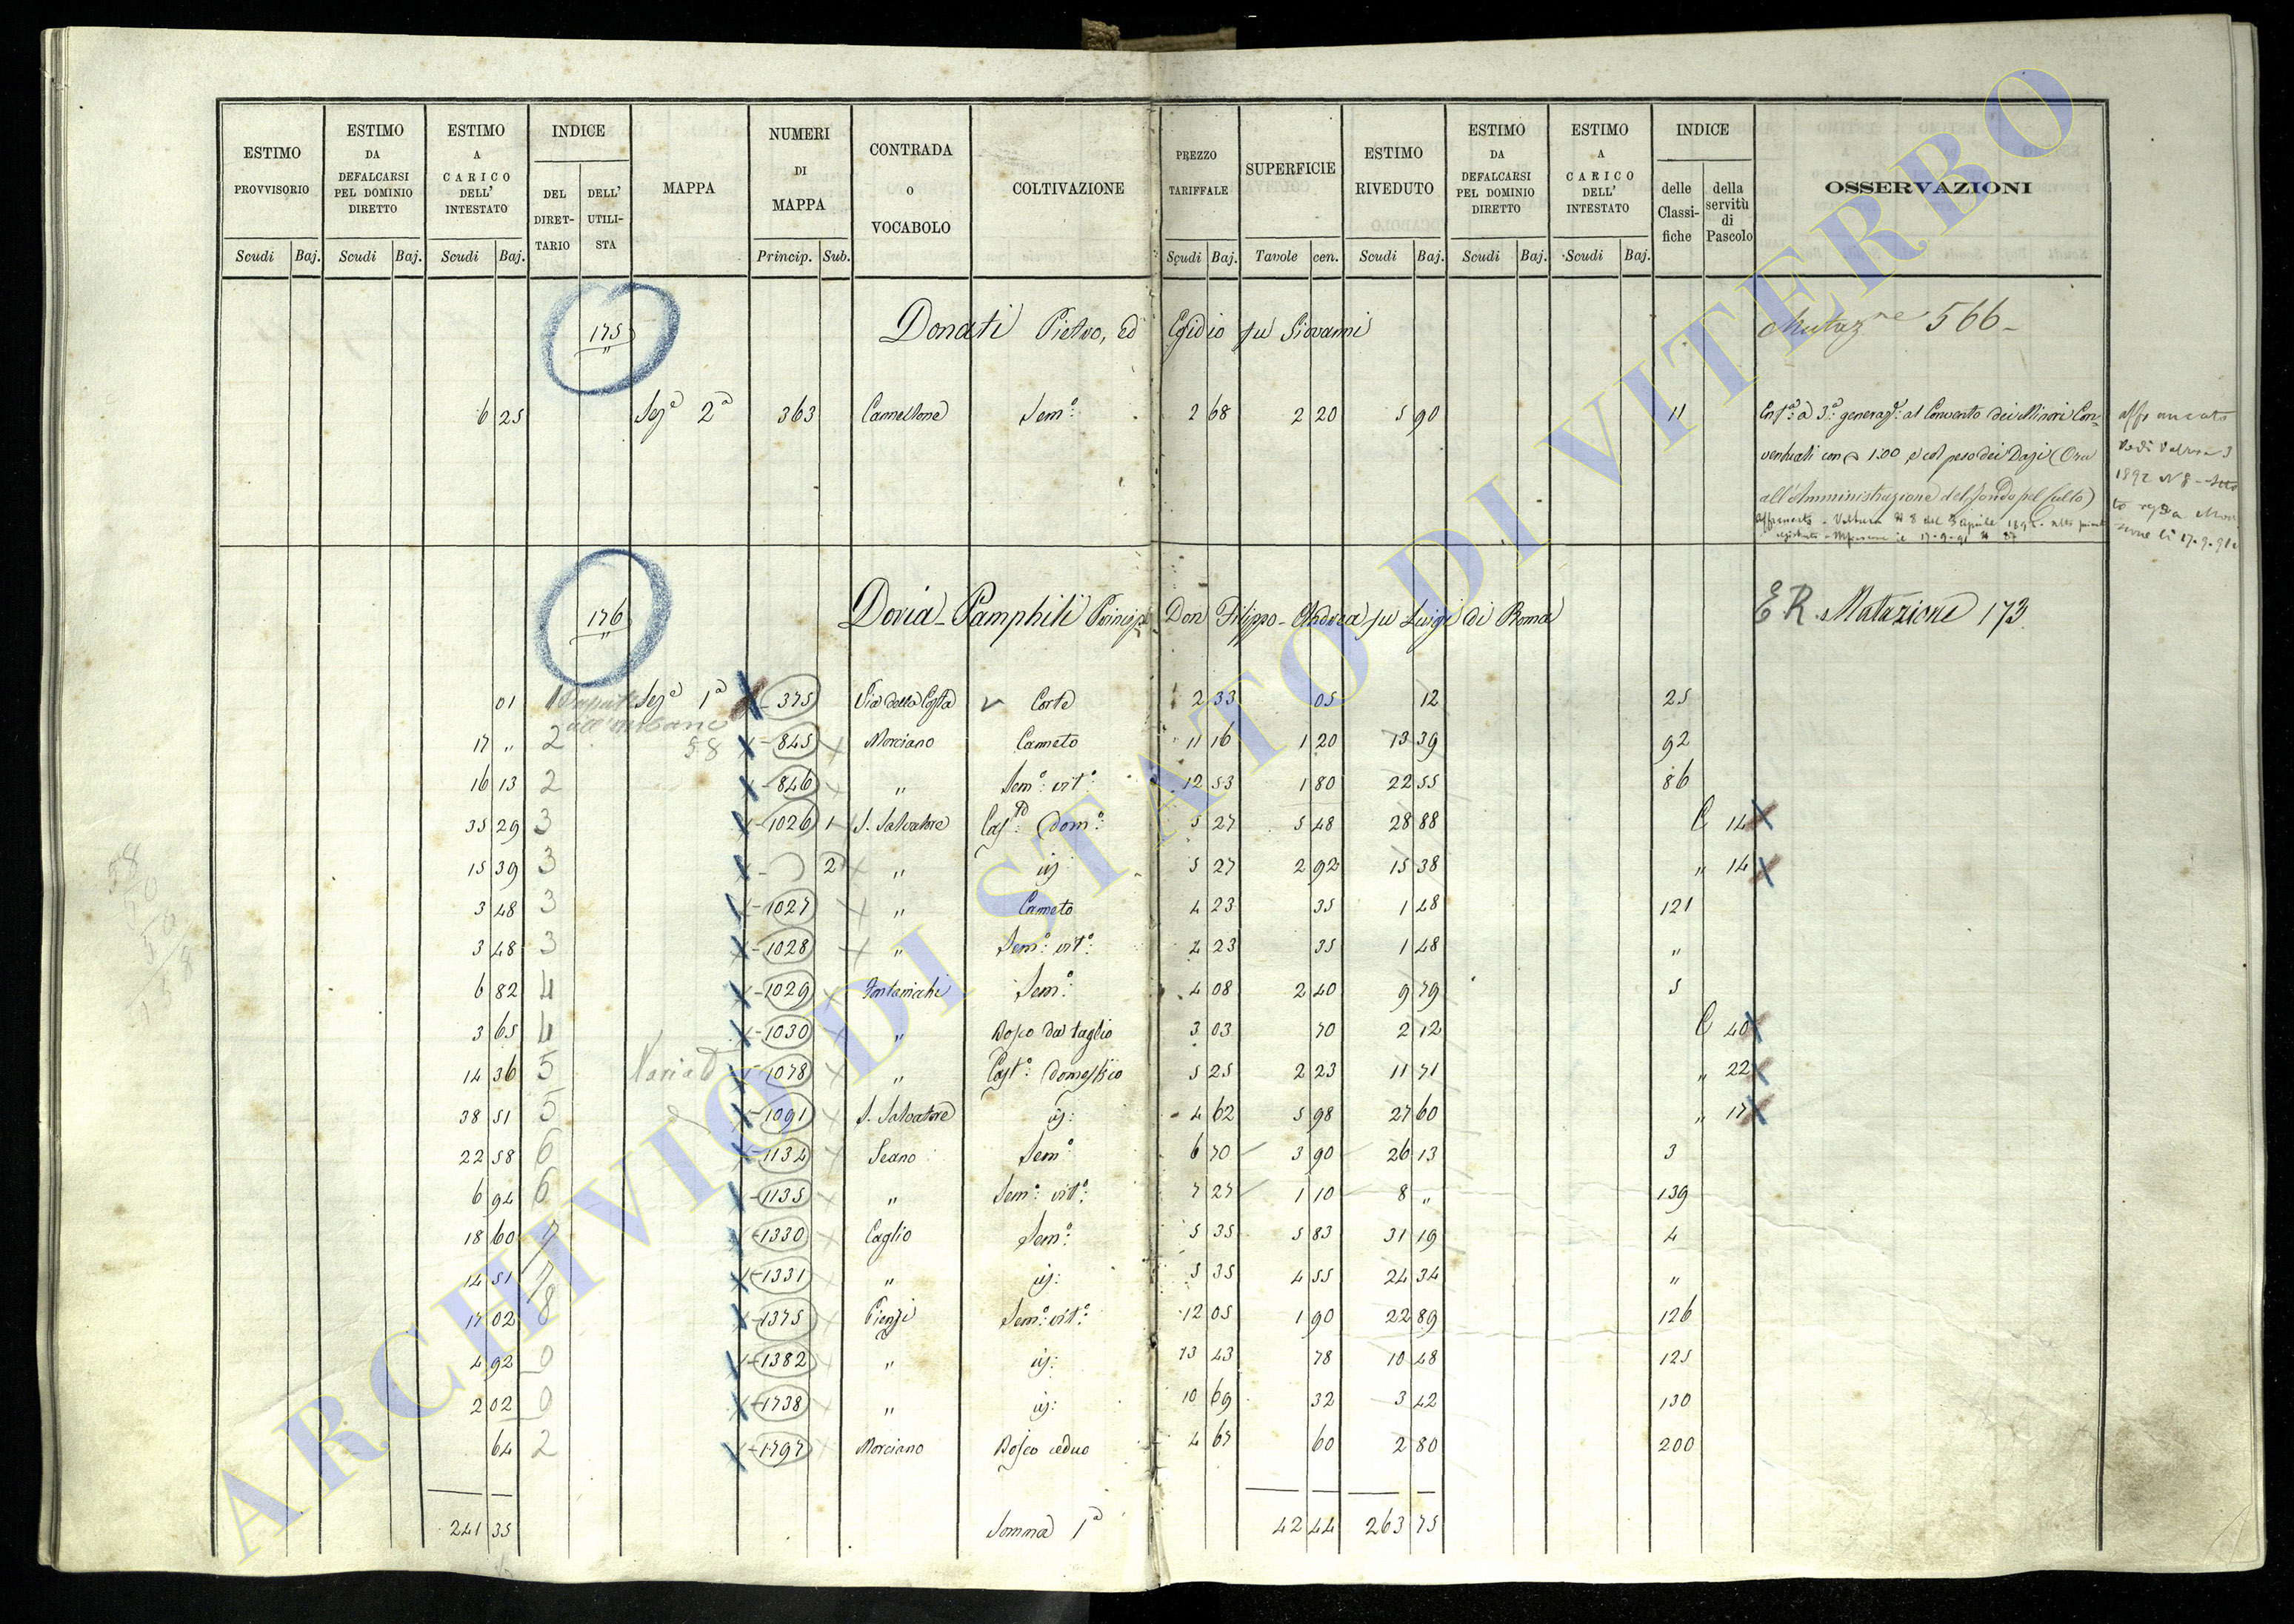 ESTIMO PROVVISORIO Scudi Baj. | ESTIMO DA DEFALCARSI PEL DOMINIO DIRETTO Scudi Baj. | ESTIMO A CARICO DELL' INTESTATO Scudi Baj. | INDICE DEL DIRETTARIO DELL' UTILISTA | MAPPA | NUMERI DI MAPPA Princip. Sub. | CONTRADA O VOCABOLO | COLTIVAZIONE | PREZZO TARIFFALE Scudi Baj. | SUPERFICIE Tavole cen. | ESTIMO RIVEDUTO Scudi Baj. | ESTIMO DA DEFALCARSI PEL DOMINIO DIRETTO Scudi Baj. | ESTIMO A CARICO DELL' INTESTATO Scudi Baj. | INDICE delle Classifiche della servitù di Pascolo | OSSERVAZIONI
175 " Donati Pietro, ed Egidio fu Giovanni Mutazne 566-
6 25 Seze 2a 363 Camellone Semo: 2 68 2 20 5 90 11 Enfa: a 3a: generaze: al Convento dei Minori Con=
ventuali con 1.00 e col peso dei Dazi (Ora
all'Amministrazione del fondo pel Culto)
affrancato
Vedi Voltura 3
1892 N 8
176 " Doria-Pamphili Principe Don Filippo-Andrea fu Luigi di Roma ER. Mutazione 173
01 1 Seze 1a 375 Via della Costa v Corte 2 33 05 12 25
17 " 2 58 845 Morciano Canneto 11 16 1 20 13 39 92
16 13 2 846 " Semo: vito: 12 53 1 80 22 55 86
35 29 3 1026 1 S. Salvatore Casto: domo: 5 27 5 48 28 88 C 14
15 39 3 2 " id: 5 27 2 92 15 38 " 14
3 48 3 1027 " Canneto 4 23 35 1 48 121
3 48 3 1028 " Semo: vito: 4 23 35 1 48 "
6 82 4 1029 Fontaniche Semo: 4 08 2 40 9 79 5
3 65 4 1030 " Bosco da taglio 3 03 70 2 12 C 40
14 36 5 Variato 1078 " Casto: domestico 5 25 2 23 11 71 " 22
38 51 5 1091 S. Salvatore id: 4 62 5 98 27 60 " 17
22 58 6 1134 Seano Semo: 6 70 3 90 26 13 3
6 94 6 1135 " Semo: vito: 7 27 1 10 8 " 139
18 60 7 1330 Caglio Semo: 5 35 5 83 31 19 4
14 51 7 1331 " id: 5 35 4 55 24 34 "
17 02 8 1375 Pienze Semo: vito: 12 05 1 90 22 89 126
4 92 0 1382 " id: 13 43 78 10 48 125
2 02 0 1738 " id: 10 69 32 3 42 130
64 2 1797 Morciano Bosco ceduo 4 67 60 2 80 200
241 35 Somma 1a 42 44 263 75
ARCHIVIO DI STATO DI VITERBO